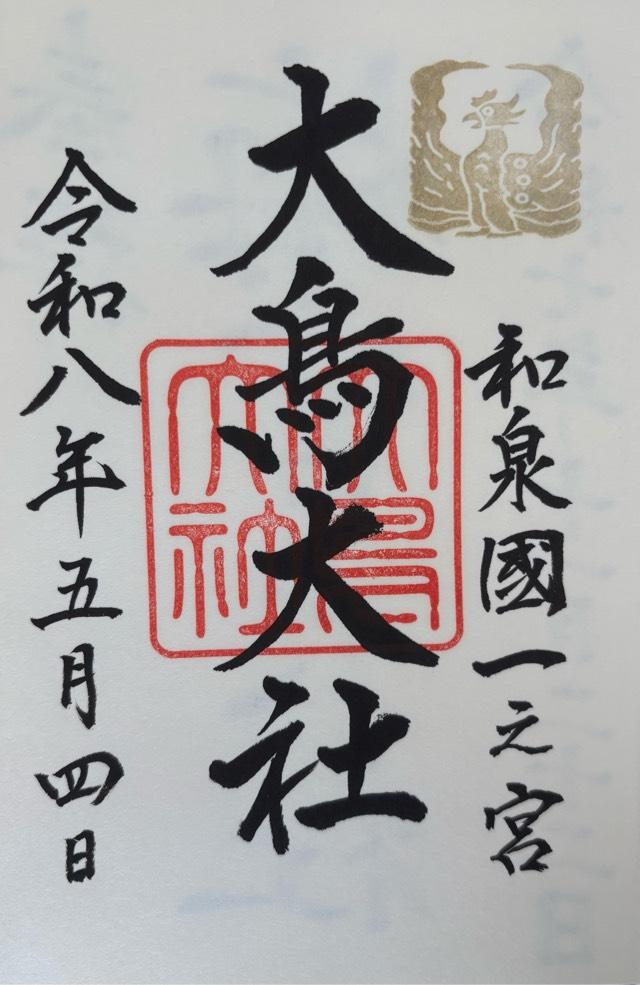 和泉國一之宮
大鳥大社
大鳥大社
令和八年五月四日